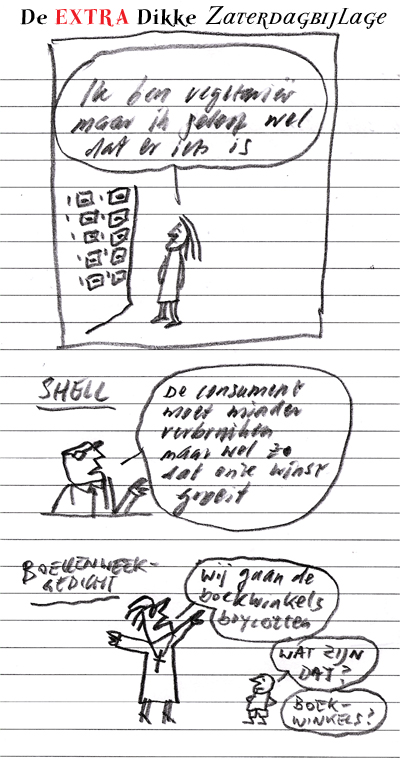 De EXTRA Dikke ZATERDAGBIJLAGE
Ik ben vegetariër
maar ik geloof wel
dat er iets is
SHELL
De consument
moet minder
verbruiken
maar wel zo
dat onze winst
groeit
BOEKENWEEK-
GEDICHT
Wij gaan de
boekwinkels
boycotten
WAT ZIJN
DAT?
BOEK-
WINKELS?